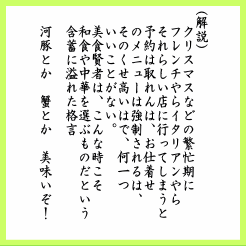 (解説)
クリスマスなどの繁忙期に
フレンチやらイタリアンやら
それらしい店に行ってしまうと
予約は取れんは、お仕着せ
のメニューは強制されるは、
そのくせ高いはで、何一つ
いいことがない。
美食賢者は、こんな時こそ
和食や中華を選ぶものだという
含蓄に溢れた格言
河豚とか　蟹とか　美味いぞ！